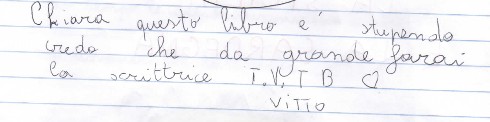 Chiara questo libro e' stupendo
credo che da grande farai
la scrittrice T.V.T B ♡
VITTO